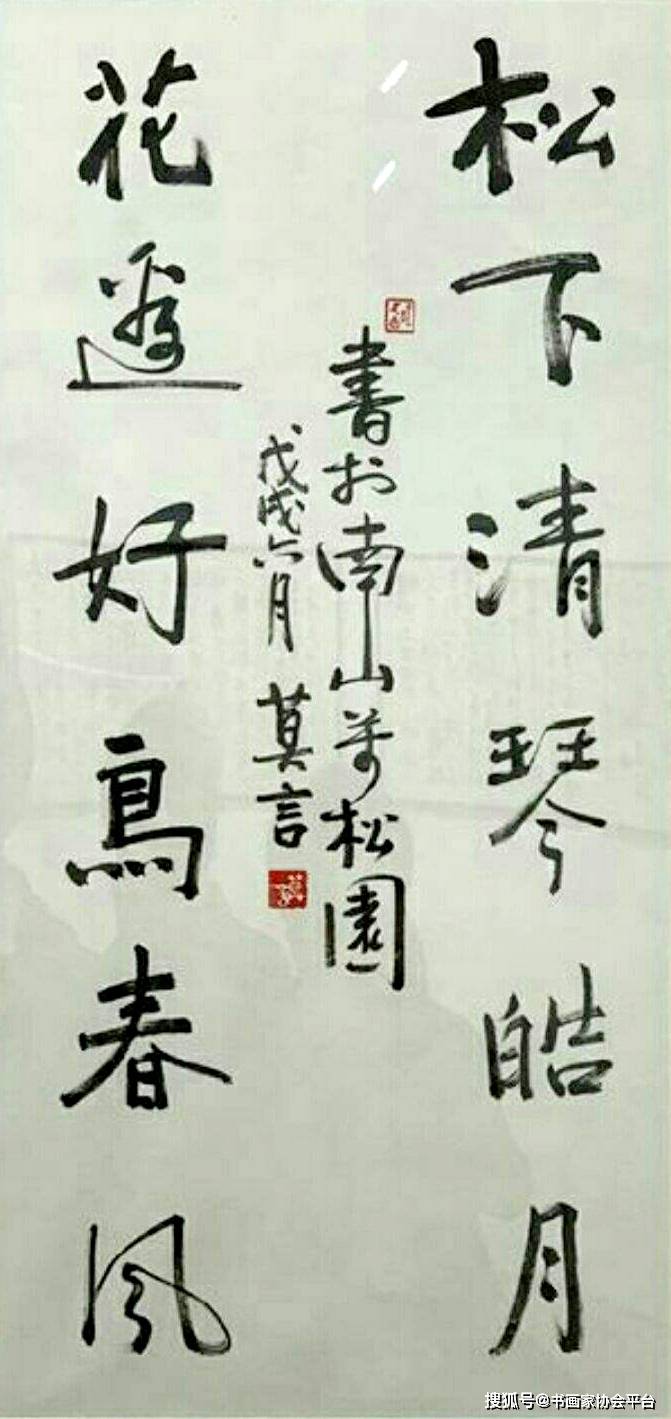 松下清琴皓月
書於南山萬松園
戊戌六月 莫言
花邊好鳥春風
搜狐号@书画家协会平台